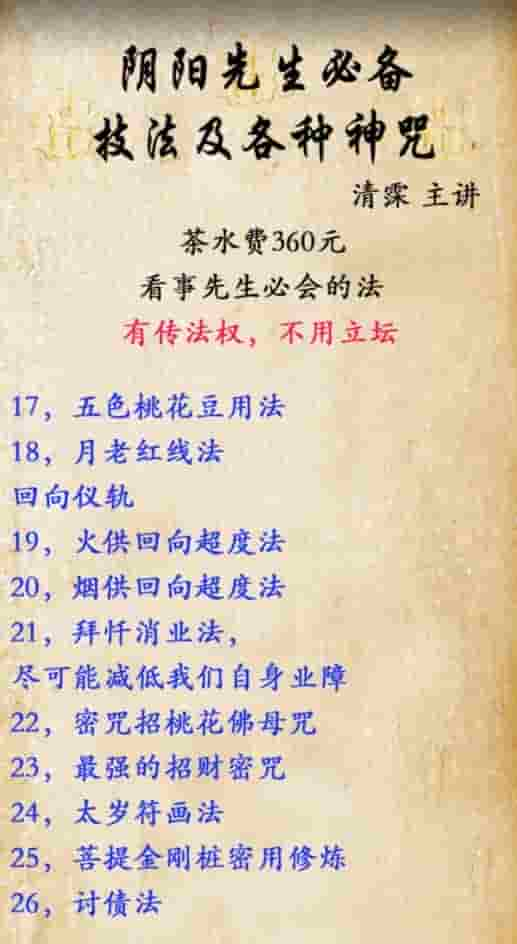 阴阳先生必备
技法及各种神咒
清霂 主讲
茶水费360元
看事先生必会的法
有传法权，不用立坛
17，五色桃花豆用法
18，月老红线法
回向仪轨
19，火供回向超度法
20，烟供回向超度法
21，拜忏消业法，
尽可能减低我们自身业障
22，密咒招桃花佛母咒
23，最强的招财密咒
24，太岁符画法
25，菩提金刚桩密用修炼
26，讨债法